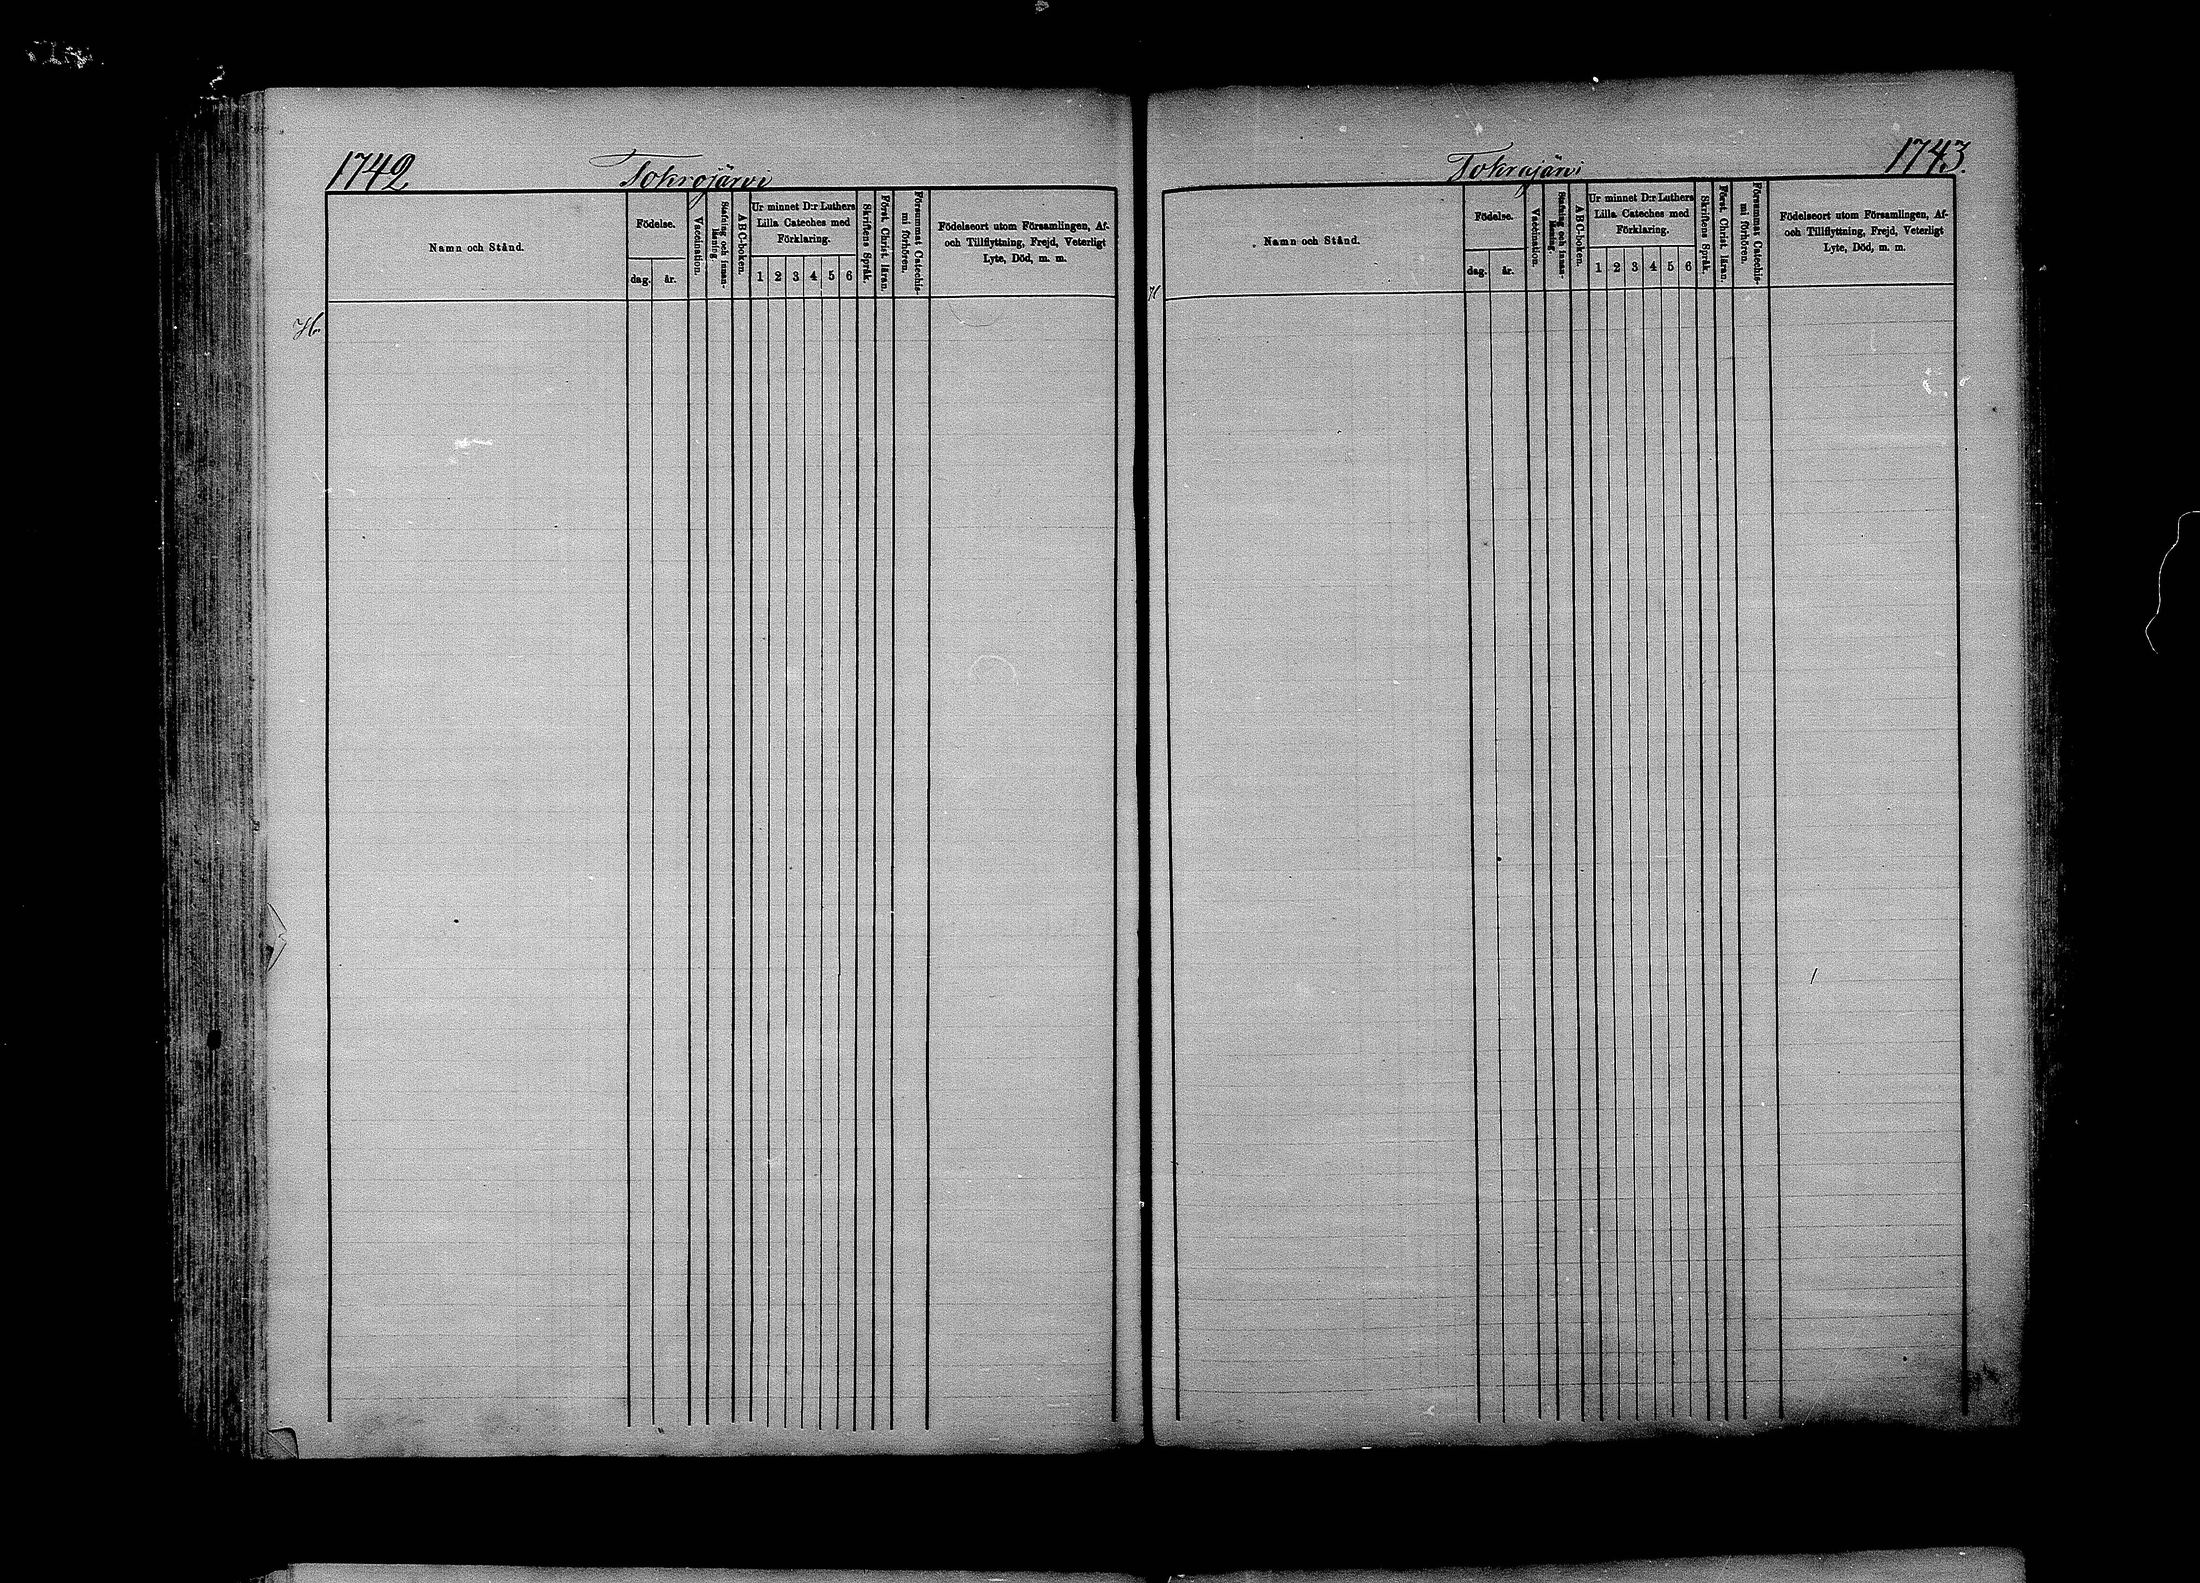 1742
Tokrajärvi
Namn och Stånd.
Födelse.
dag. år.
Vaccination.
Stafning och innan-
läsning.
ABC-boken.
Ur minnet D:r Luthers
Lilla Cateches med
Förklaring.
1 2 3 4 5 6
Skriftens Språk.
Först. Christ. läran.
Försummat Catechis-
mi förhören.
Födelseort utom Församlingen, Af-
och Tillflyttning, Frejd, Veterligt
Lyte, Död, m. m.
1743.
Tokrajärvi
Namn och Stånd.
Födelse.
dag. år.
Vaccination.
Stafning och innan-
läsning.
ABC-boken.
Ur minnet D:r Luthers
Lilla Cateches med
Förklaring.
1 2 3 4 5 6
Skriftens Språk.
Först. Christ. läran.
Försummat Catechis-
mi förhören.
Födelseort utom Församlingen, Af-
och Tillflyttning, Frejd, Veterligt
Lyte, Död, m. m.